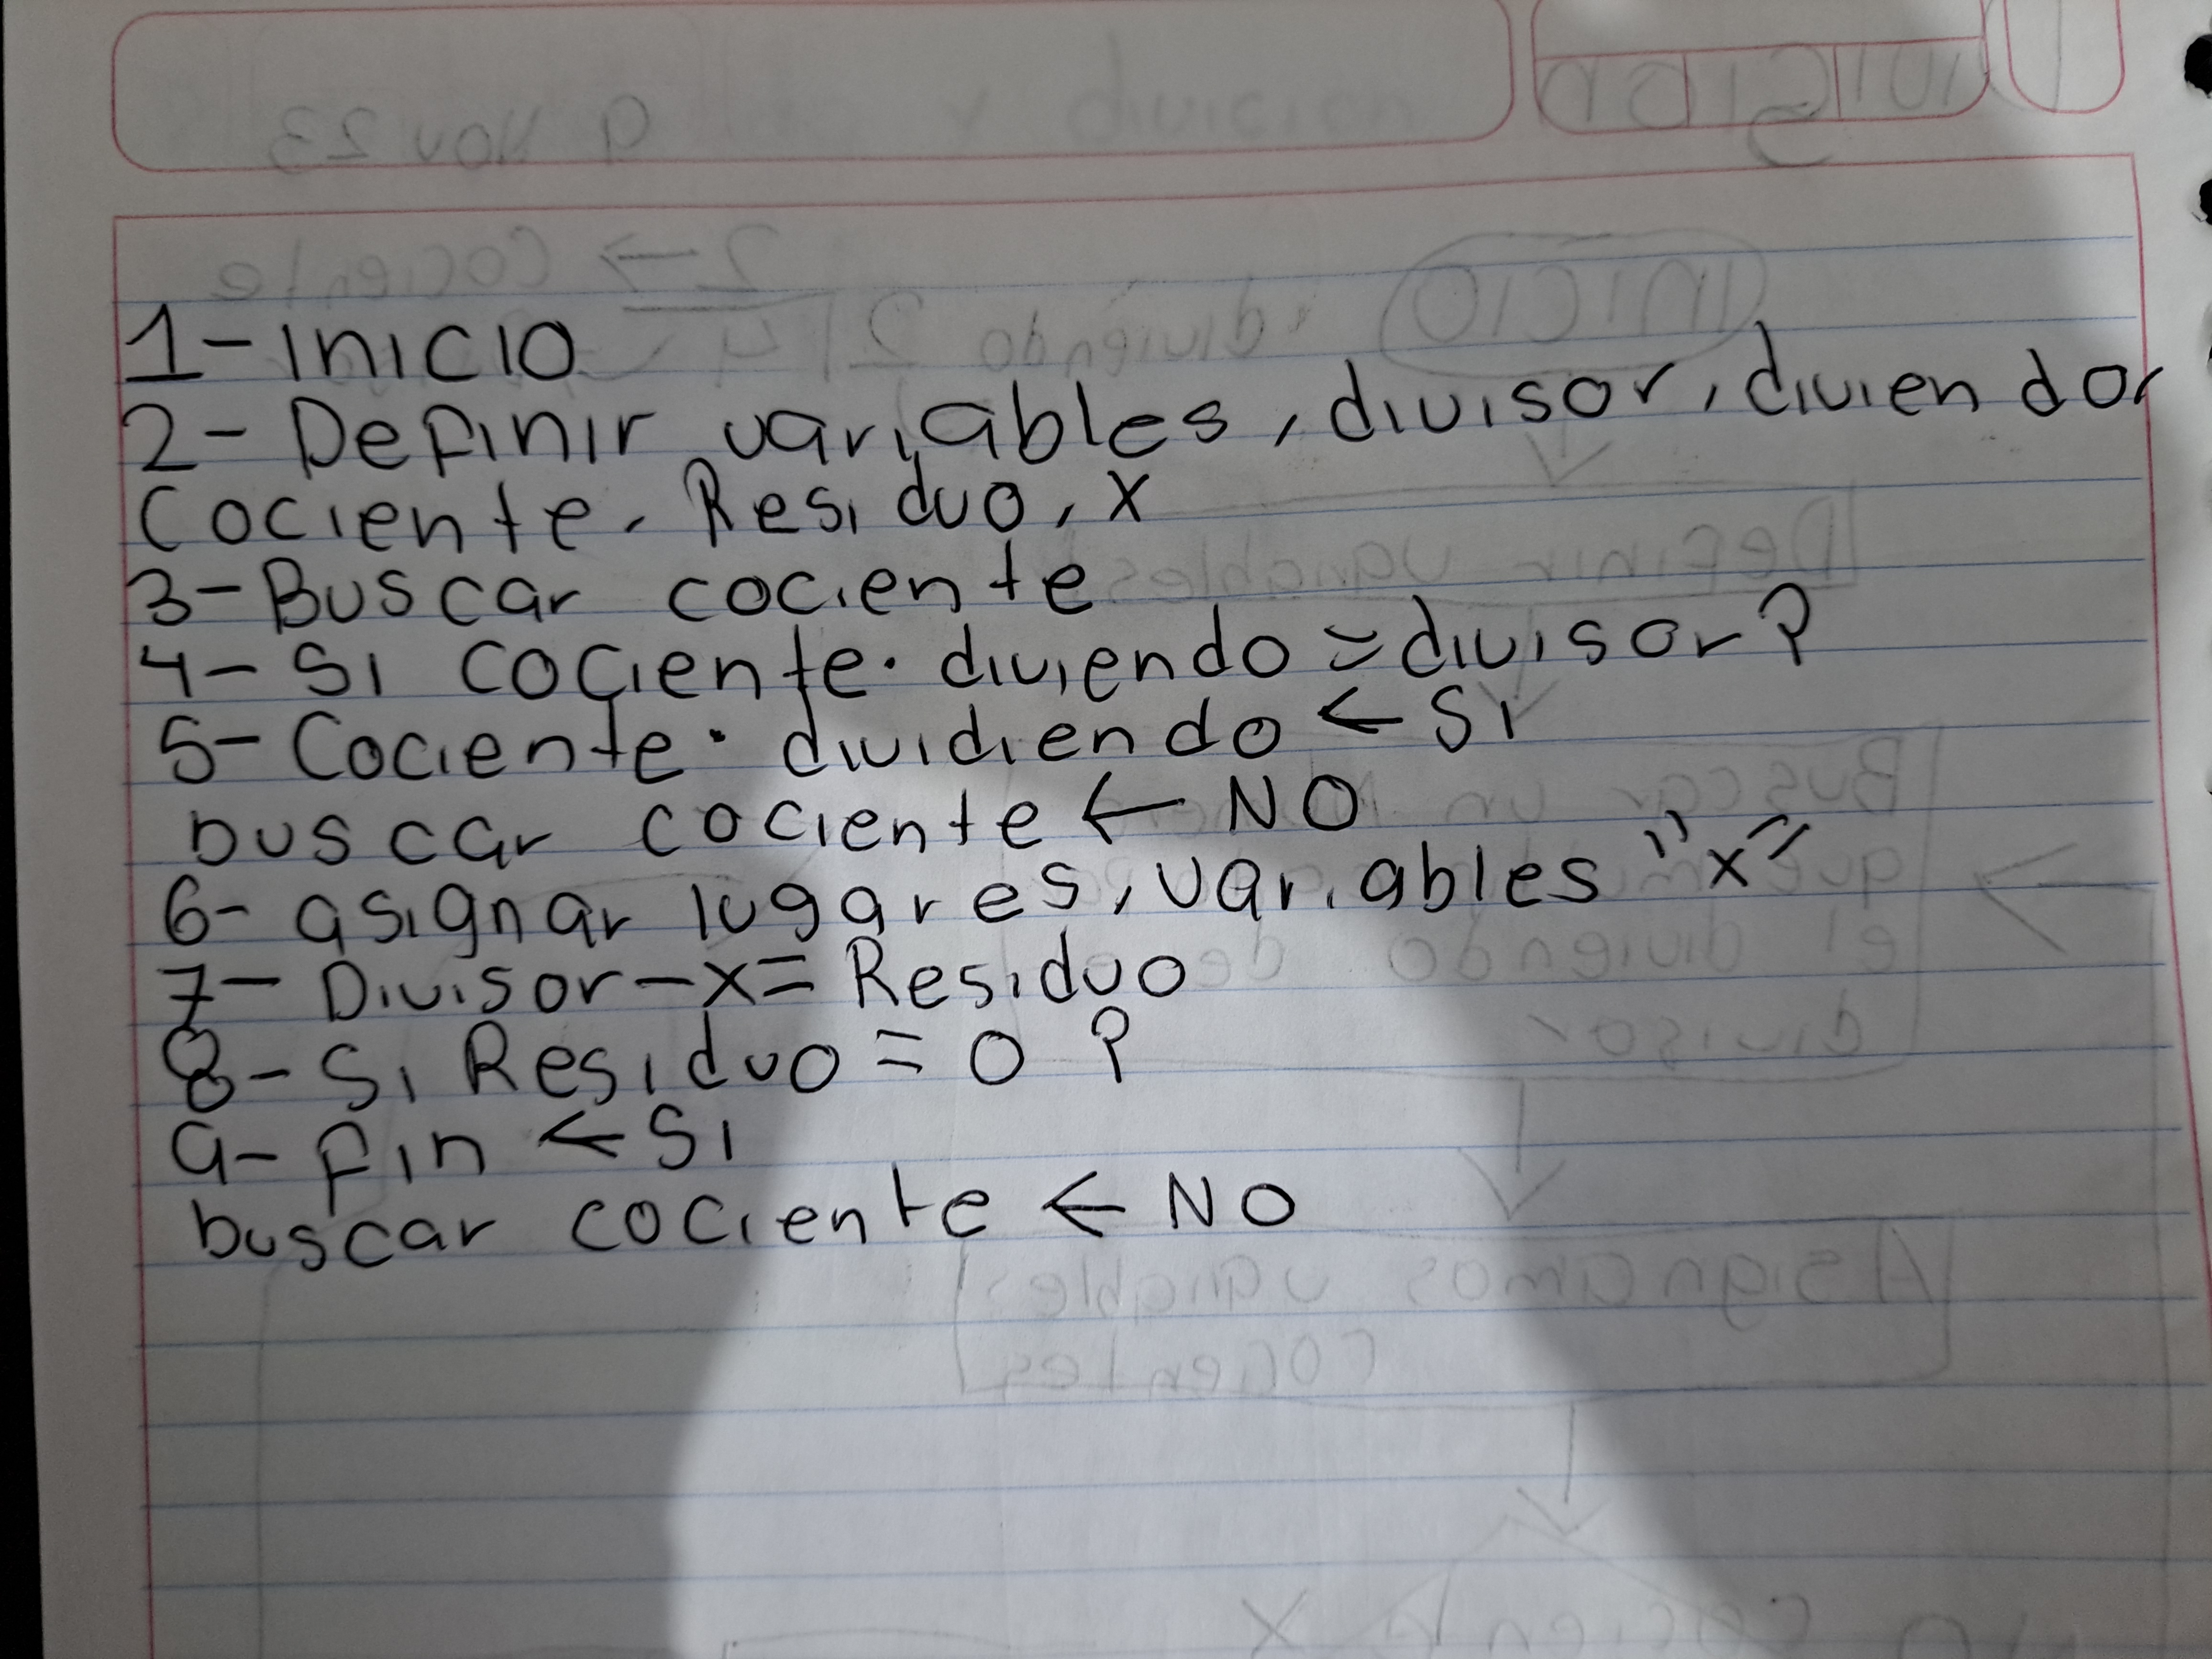 1-Inicio
2- Definir variables, divisor, diviendo,
Cociente, Residuo, x
3-Buscar cociente
4- Si cociente · diviendo = divisor?
5- Cociente · dividiendo ← Si
buscar cociente ← NO
6- asignar lugares, variables "x"
7- Divisor-x= Residuo
8- Si Residuo = 0 ?
9- Fin ← Si
buscar cociente ← NO